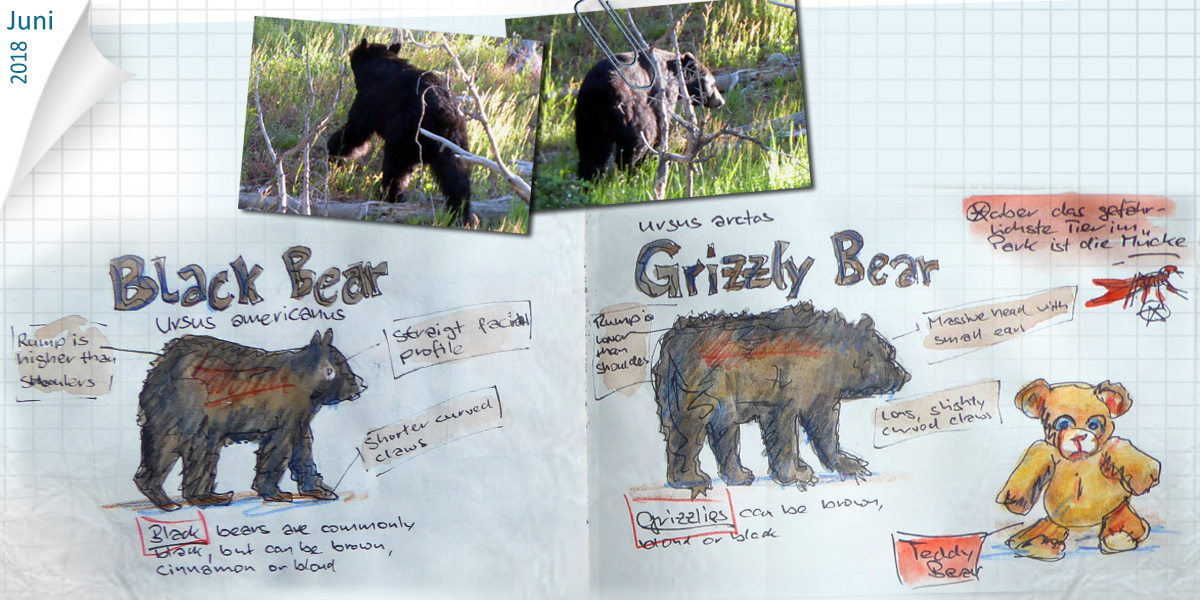 Juni
2018
Black Bear
Ursus americanus
Rump is
higher than
shoulers
straigt facial
profile
Shorter curved
claws
Black bears are commonly
black, but can be brown,
cinnamon or blond
ursus arctos
Grizzly Bear
Rump is
lower
than
shoulders
Massive head with
small ears
Long, slightly
curved claws
Grizzlies can be brown,
blond or black
aber das gefähr-
lichste Tier im
Park ist die Mücke
Teddy
Bear